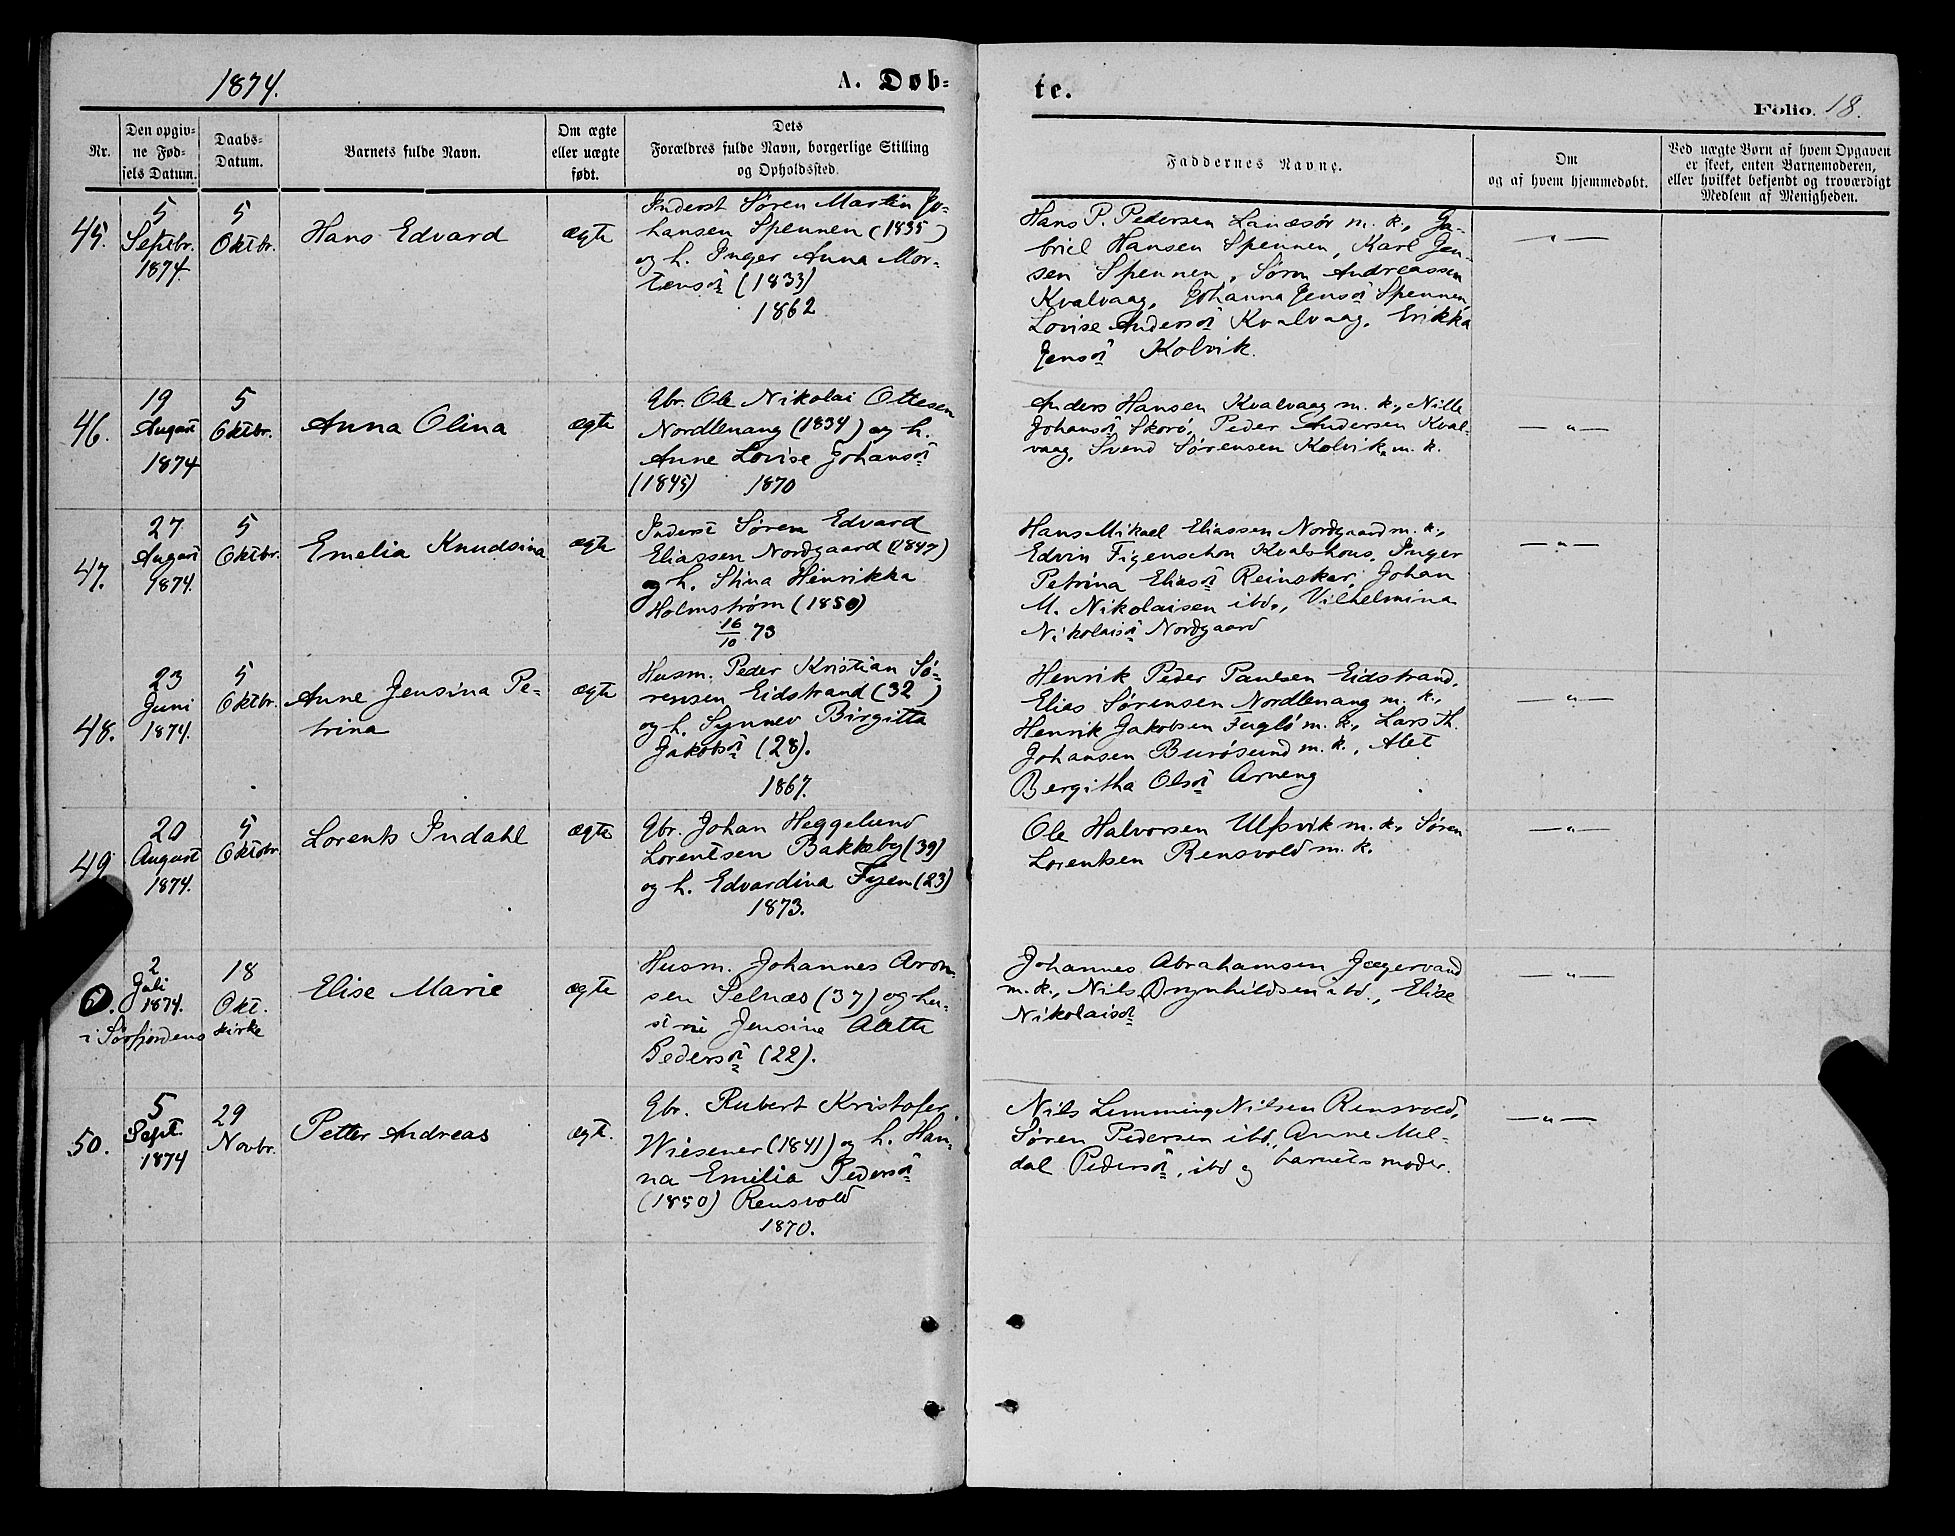 1874.
A. Døb-
te.
Folio. 18.
Nr.
Den opgiv-
ne Fød-
sels Datum.
Daabs-
Datum.
Barnets fulde Navn.
Om ægte
eller uægte
født.
Dets
Forældres fulde Navn, borgerlige Stilling
og Opholdssted.
Faddernes Navne.
Om
og af hvem hjemmedøbt.
Ved uægte Børn af hvem Opgaven
er skeet, enten Barnemoderen,
eller hvilket bekjendt og troværdigt
Medlem af Menigheden.
45.
5
Septbr.
1874.
5
Oktbr.
Hans Edvard
ægte
Inderst Søren Martin Jo-
hansen Spennen (1835)
og h. Inger Anna Mor-
tensd (1833)
1862
Hans P. Pedersen Lanæsør m. k., Ga-
briel Hansen Spennen, Karl Jen-
sen Spennen, Søren Andreassen
Kvalvaag, Johanna Jensd Spennen,
Lovise Andersd Kvalvaag, Erikka
Jensd Kolvik.
— " —
46.
19
August
1874
5
Oktbr.
Anna Olina
ægte
Gbr. Ole Nikolai Ottesen
Nordlenang (1834) og h.
Anne Lovise Johansd
(1845) 1870
Anders Hansen Kvalvaag m. k., Nille
Johansd Skorø, Peder Andersen Kval-
vaag, Svend Sørensen Kolvik m. k.
— " —
47.
27
August
1874.
5
Oktbr.
Emelia Knudsina
ægte
Inderst Søren Edvard
Eliassen Nordgaard (1847)
og h. Stina Hinrikka
Holmstrøm (1850)
16/10 73
Hans Mikael Eliassen Nordgaard m. k.,
Edvin Figenschou Kvalshous, Inger
Petrina Eliasd Reinskar, Johan
M. Nikolaisen ibd., Vilhelmina
Nikolaisd Nordgaard
— " —
48.
23
Juni
1874.
5
Oktbr.
Anne Jensina Pe-
trina
ægte
Husm. Peder Kristian Sø-
rensen Eidstrand (32)
og h. Synnev Birgitta
Jakobsd (28).
1867.
Henrik Peder Paulsen Eidstrand,
Elias Sørensen Nordlenang m. k.,
Henrik Jakobsen Fuglø m. k., Lars Th.
Johansen Burøsund m. k., Alet
Bergitha Olsd Arneng
— " —
49
20
August
1874.
5
Oktobr.
Lorents Indahl
ægte
Gbr. Johan Heggelund
Lorentsen Bakkeby (39)
og h. Edvardina Fyen (23)
1873.
Ole Halvorsen Ulfsvik m. k., Søren
Lorentsen Rensvold m. k.
— " —
2
Juli
1874.
18
Okt.
i Sørfjordens kirke
Elise Marie
ægte
Husm. Johannes Aron-
sen Selnæs (37) og hu-
stru Jensine Alette
Pedersd (22).
Johannes Abrahamsen Jægervand
m. k., Nils Brynhildsen ibd., Elise
Nikolaisd
— " —
50.
5
Sept.
1874
29
Novbr.
Petter Andreas
ægt.
Gbr. Rubert Kristofer
Wiesener (1841) og h. Han-
na Emilia Pedersd
(1850) Rensvold
1870.
Nils Lemming Nilsen Rensvold,
Søren Pedersen ibd., Anne Mel-
dal Pedersd, ibd og barnets moder.
— " —